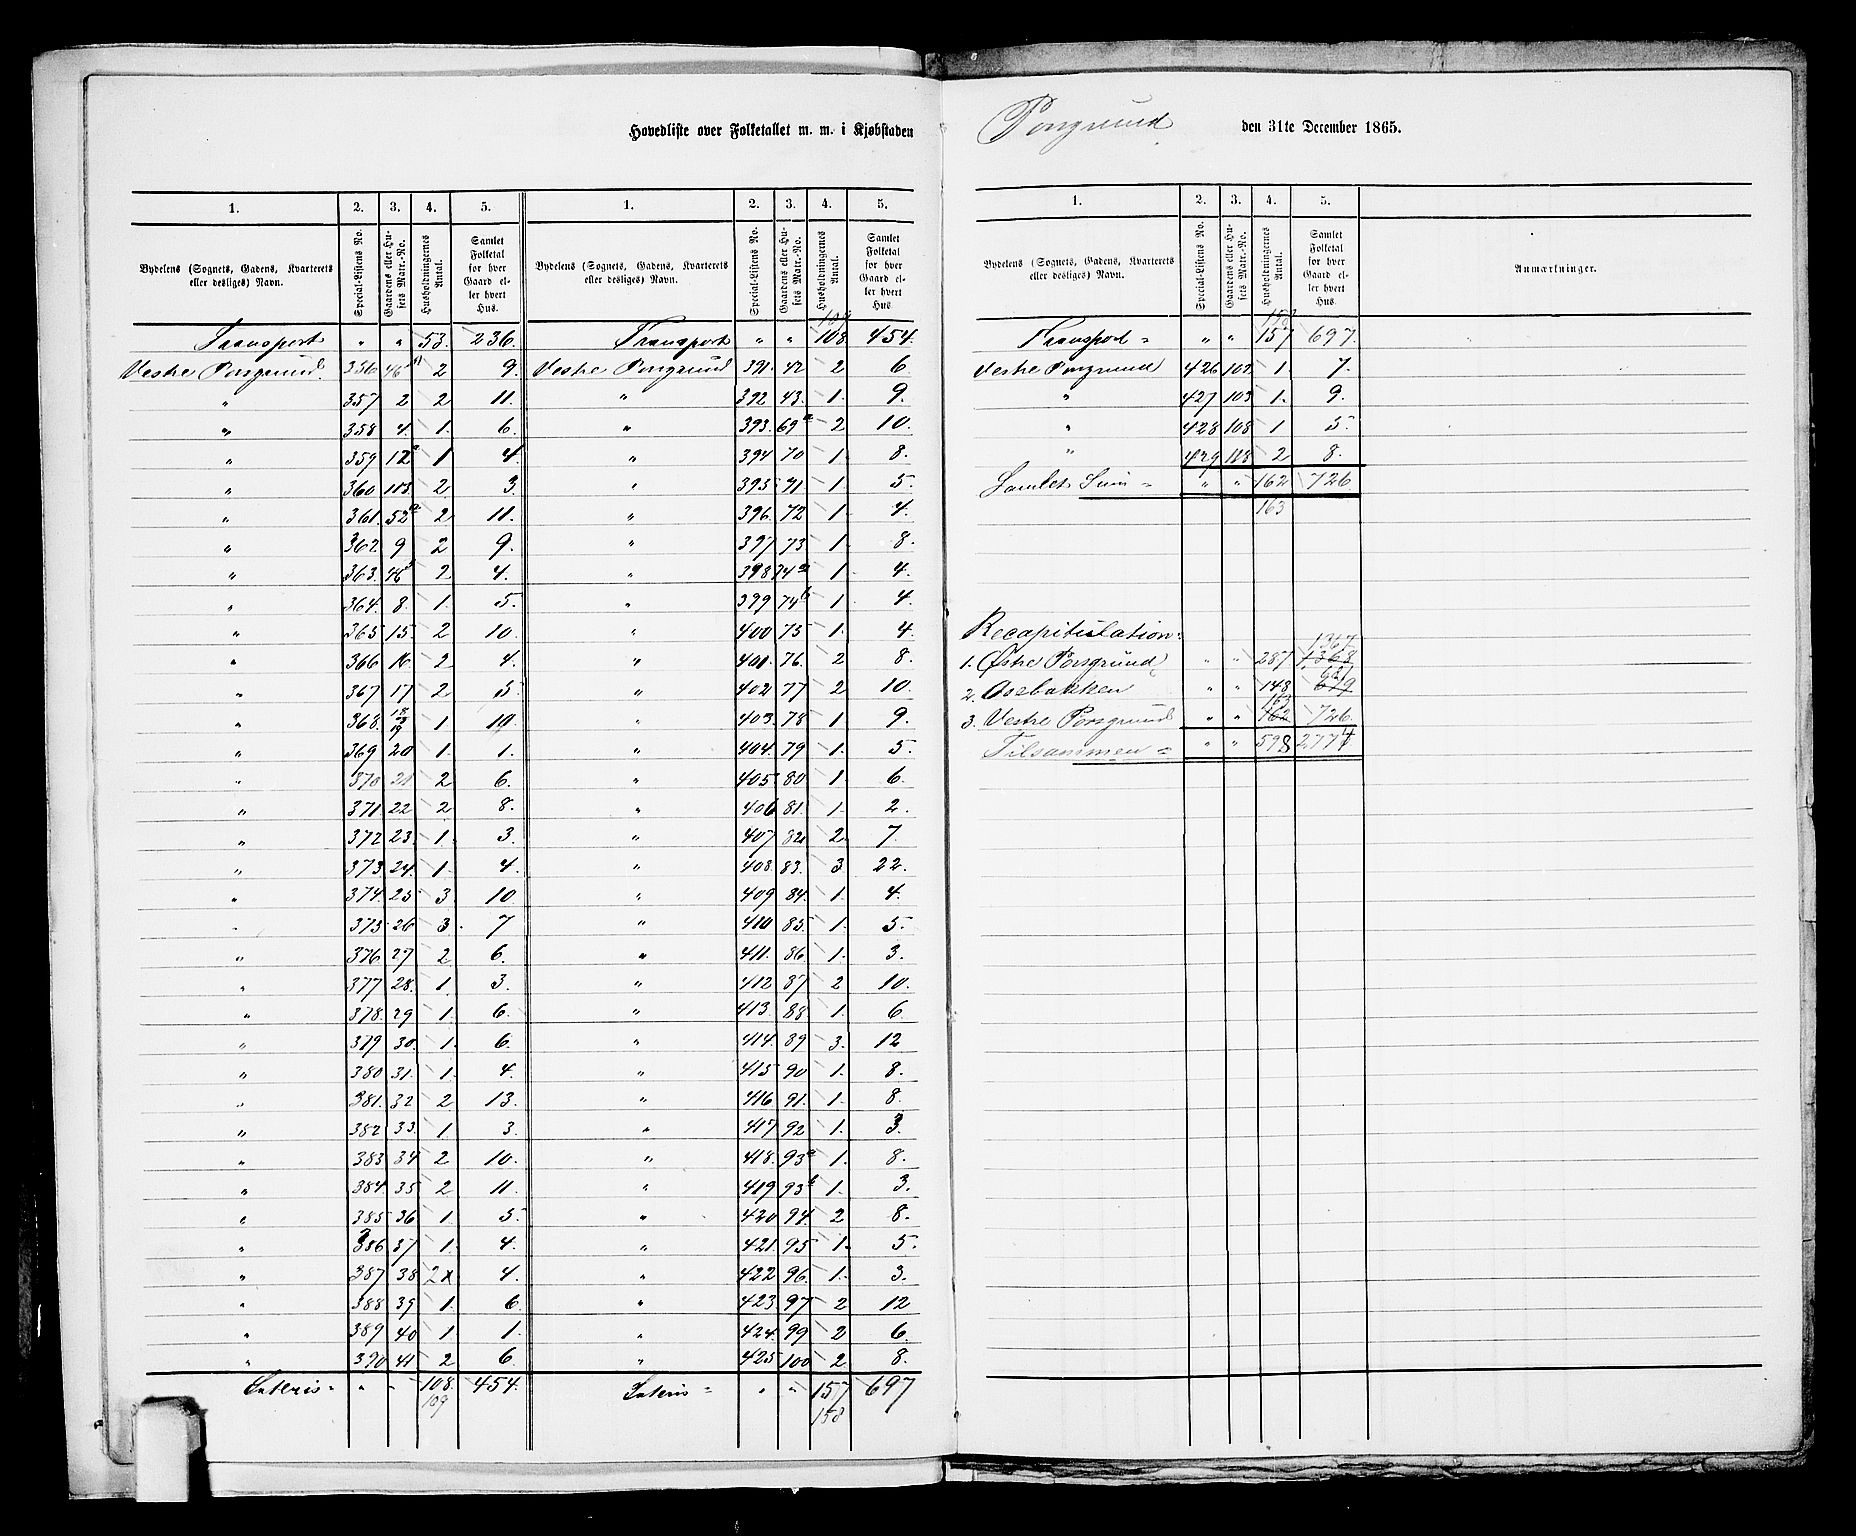 Hovedliste over Folketallet m. m. i Kjøbstaden Porsgrund den 31te December 1865.
1. 2. 3. 4. 5. 1. 2. 3. 4. 5.
Bydelens (Sognets, Gadens, Kvarterets eller desliges) Navn. Special-Listens No. Gaardens eller Husets Matr.-No. Husholdningernes Antal. Samlet Folketal for hver Gaard eller hvert Hus. Bydelens (Sognets, Gadens, Kvarterets eller desliges) Navn. Special-Listens No. Gaardens eller Husets Matr.-No. Husholdningernes Antal. Samlet Folketal for hver Gaard eller hvert Hus.
109
Transport " " 53. 236. Transport " " 108 454.
Vestre Porsgrund 356 46 2 9. Vestre Porsgrund 391. 42 2 6
" 357 2 2 11. " 392 43. 1. 9.
" 358 4. 1. 6. " 393. 69a 2 10.
" 359 12a 1 4. " 394 70 1. 8.
" 360 113. 2 3. " 395 71 1 5.
" 361. 52a 2 11. " 396. 72 1. 4.
" 362. 9 2 9. " 397 73 1. 8.
" 363. 46b 2 4. " 398 74a 1 4.
" 364. 8. 1. 5. " 399 74b 1 4.
" 365 15. 2 10. " 400 75 1. 4
" 366 16. 2 4. " 401. 76. 2 8.
" 367 17 2 5. " 402 77 2 10.
" 368 18 & 19 1 10. " 403. 78 1 9.
" 369 20 1. 1. " 404. 79 1. 5.
" 370 21 2 6. " 405 80 1 6.
" 371. 22 2 8. " 406 81. 1. 2.
" 372 23 1. 3. " 407 82 2. 7.
" 373 24. 1. 4. " 408. 83. 3 22.
" 374. 25 3. 10 " 409 84. 1. 4.
" 375 26 3. 7 " 410 85. 1. 5.
" 376. 27 2 6. " 411. 86. 1. 3.
" 377 28. 1. 3. " 412 87 2 10.
" 378. 29 1. 6. " 413. 88 1. 6.
" 379 30. 1. 6. " 414. 89 3. 12
" 380 31. 1. 4. " 415 90 1. 8.
" 381. 32 2 13. " 416 91. 1. 8.
" 382 33. 1. 3. " 417 92 1. 3.
" 383 34 2 10. " 418. 93a 1. 8.
" 384. 35 2 11. " 419 93b 1. 3.
" 385 36 1. 5. " 420 94. 2 8.
" 386 37 1. 4. " 421. 95 1. 5.
" 387 38 2x 4. " 422 96. 1. 3.
" 388 39 1. 6. " 423 97 2 12
" 389 40 1. 1. " 424. 99 2 6.
" 390 41 2 6. " 425 100 2 8.
Lateris " " 108. 454. Lateris " " 157 697
109 158
1. 2. 3. 4. 5.
Bydelens (Sognets, Gadens, Kvarterets eller desliges) Navn. Special-Listens No. Gaardens eller Husets Matr.-No. Husholdningernes Antal. Samlet Folketal for hver Gaard eller hvert Hus. Anmærkninger.
158
Transport " " 157 697.
Vestre Porsgrund 426 102. 1. 7.
" 427 103 1. 9.
" 428 108 1 5.
" 429 118 2 8.
Samlet Sum " " 162 726
163
Recapitulation:
1367
1. Østre Porsgrund " " 287 1,368
621
2. Osebakken " " 148 619
163
3. Vestre Porsgrund " " 162 726.
Tilsammen " " 598 2774